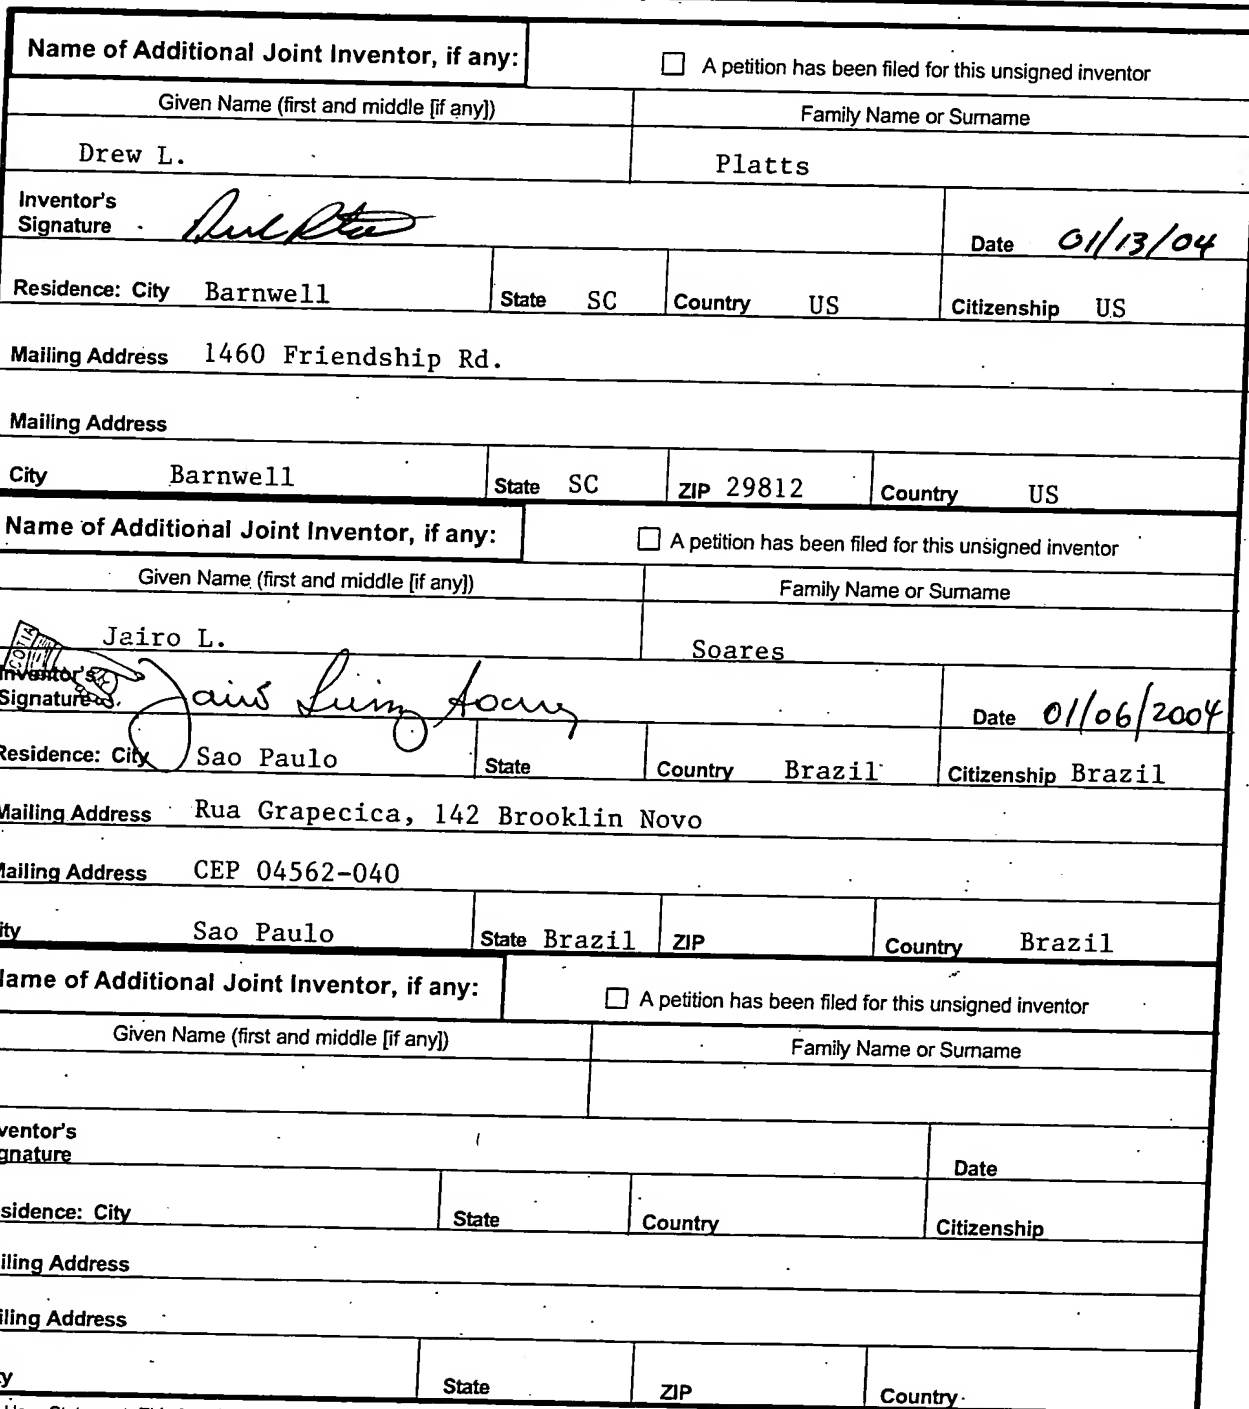 Name of Additional Joint Inventor, if any: ☐ A petition has been filed for this unsigned inventor
Given Name (first and middle [if any]) Family Name or Surname
Drew L. Platts
Inventor's
Signature Date 01/13/04
Residence: City Barnwell State SC Country US Citizenship US
Mailing Address 1460 Friendship Rd.
Mailing Address
City Barnwell State SC ZIP 29812 Country US
Name of Additional Joint Inventor, if any: ☐ A petition has been filed for this unsigned inventor
Given Name (first and middle [if any]) Family Name or Surname
Jairo L. Soares
COTIA
Inventor's
Signature Jairo Luiz Soares Date 01/06/2004
Residence: City Sao Paulo State Country Brazil Citizenship Brazil
Mailing Address Rua Grapecica, 142 Brooklin Novo
Mailing Address CEP 04562-040
ity Sao Paulo State Brazil ZIP Country Brazil
Name of Additional Joint Inventor, if any: ☐ A petition has been filed for this unsigned inventor
Given Name (first and middle [if any]) Family Name or Surname
ventor's
gnature Date
sidence: City State Country Citizenship
iling Address
iling Address
y State ZIP Country